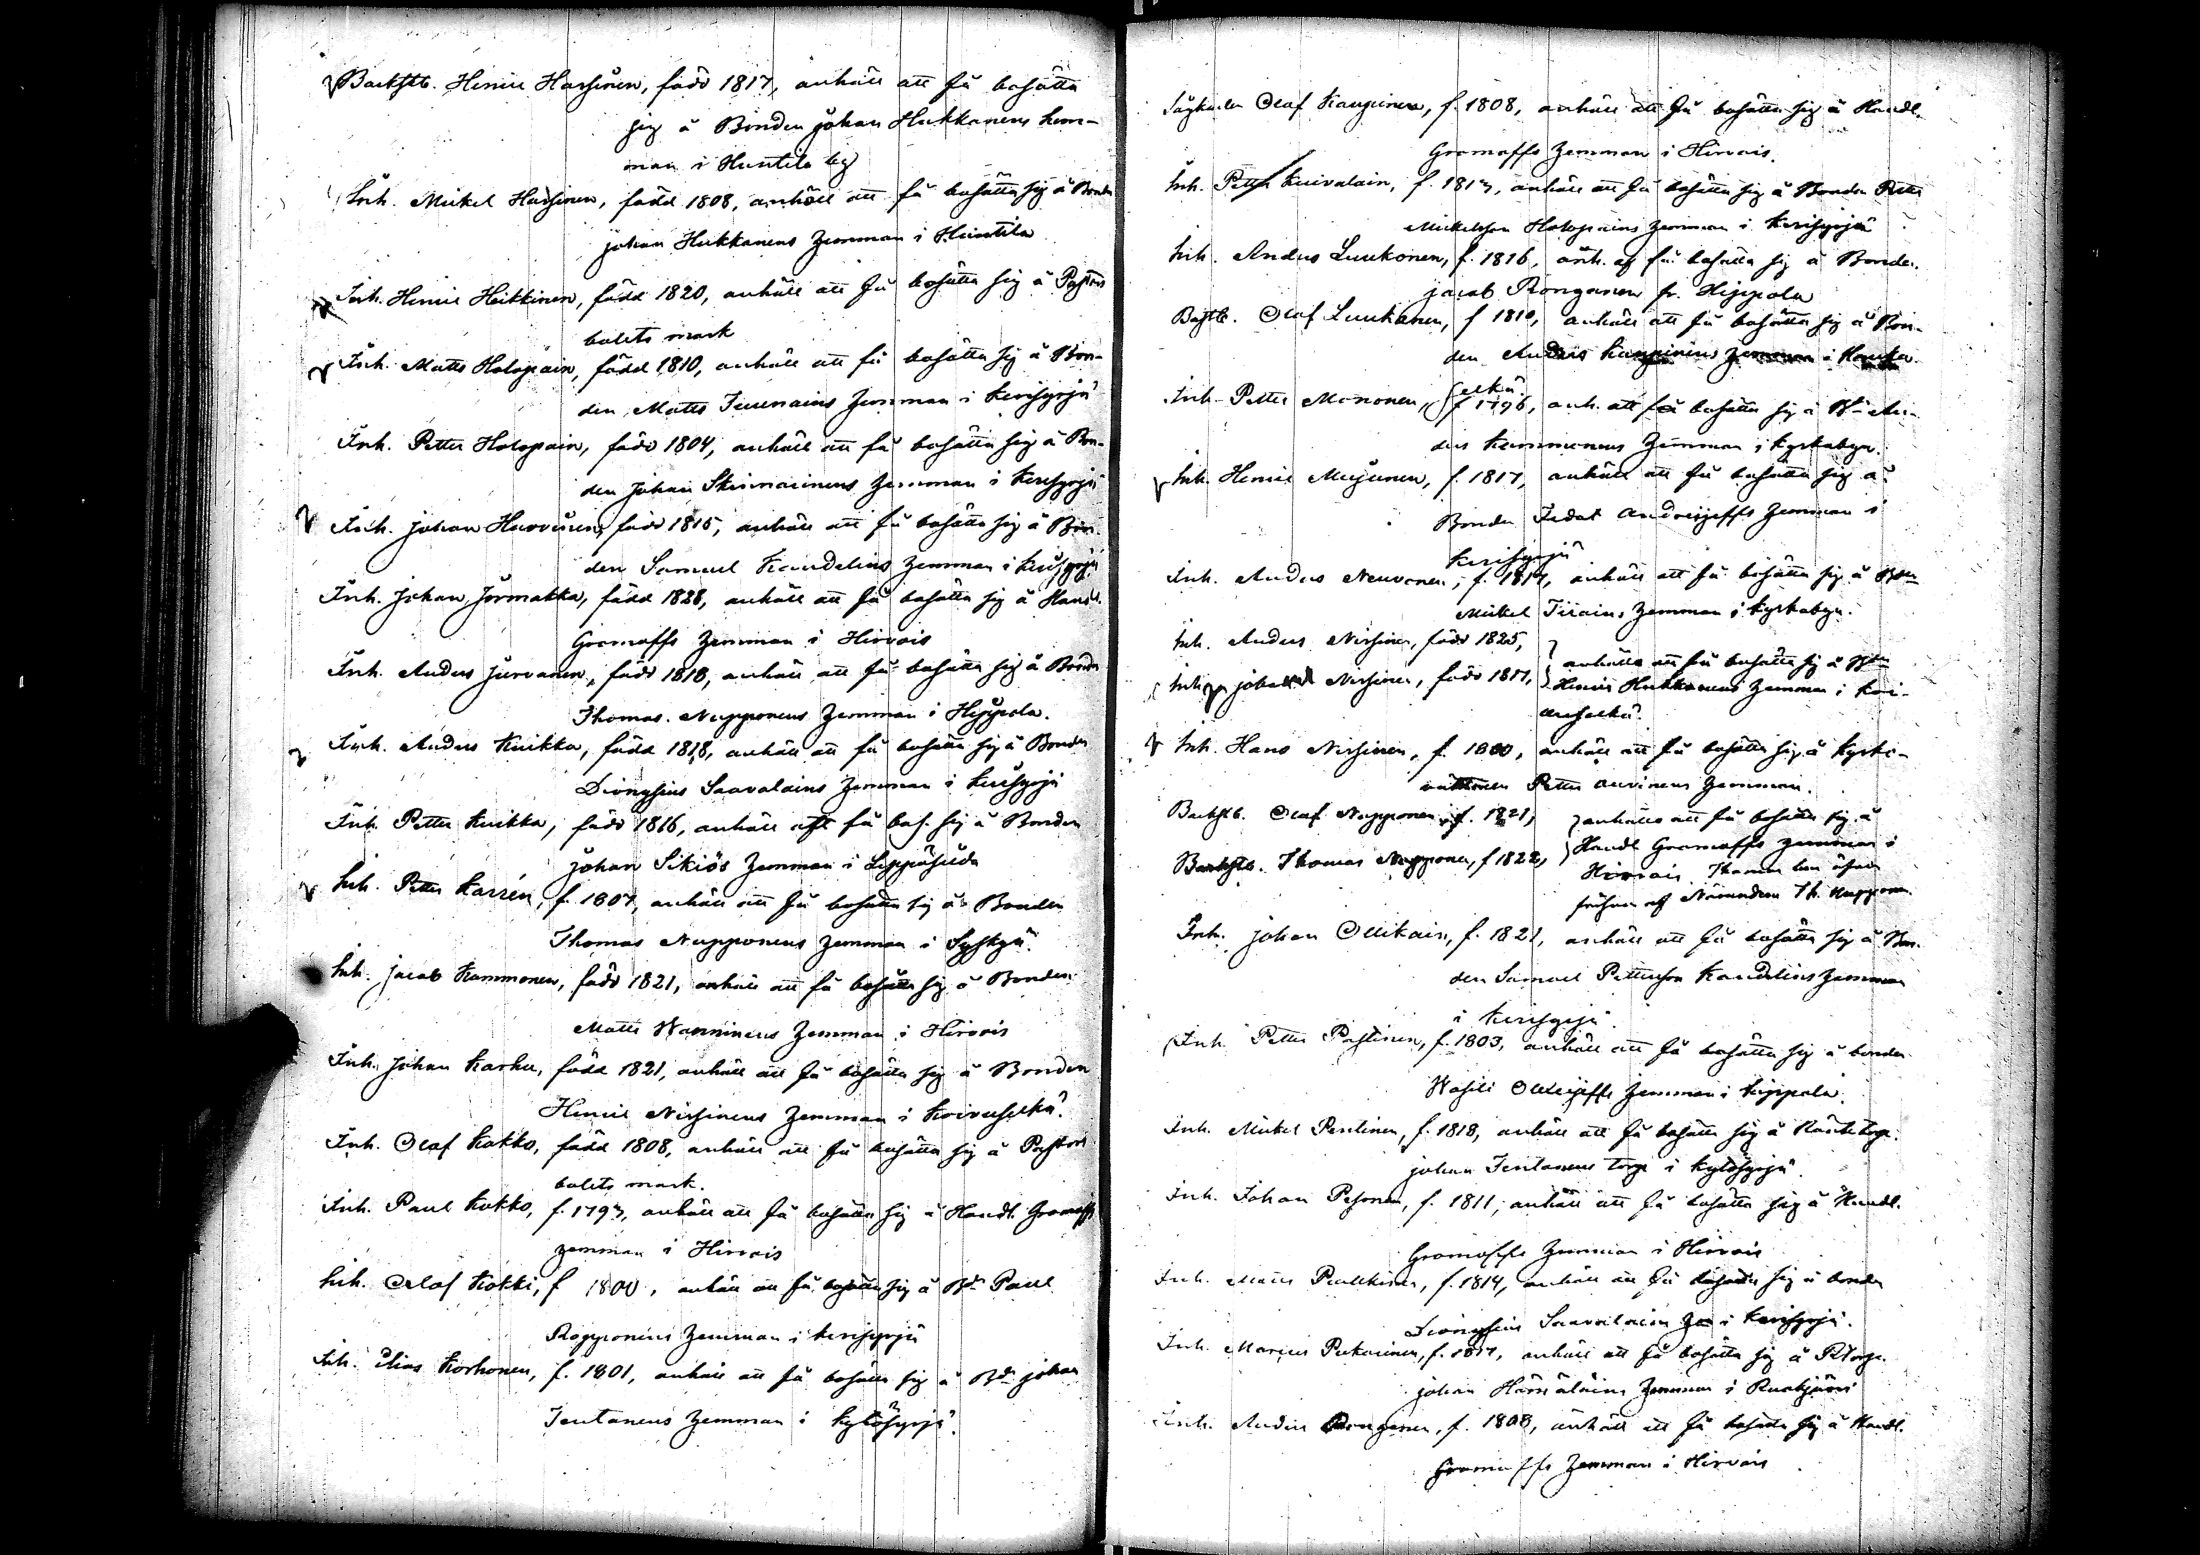 Backstb. Henric Hassinen, född 1817, anhåll att få bosätta
sig å Bonden Johan Hukkanens hem-
man i Huntila by
Inh. Mickel Hassinen, född 1808, anhåll att få bosätta sig å Bonden
Johan Hukkanens hemman i Huntila
Inh. Henric Heikkinen, född 1820, anhåll att få bosätta sig å Pastors
bolets mark
Inh. Matts Holopain, född 1810, anhåll att få bosätta sig å Bon-
den Matts Juvonains hemman i Kerisyrjä
Inh. Petter Holopain, född 1804, anhåll att få bosätta sig å Bon-
den Johan hemman i Kerisyrjä
Inh. Johan Huovinen, född 1815, anhåll att få bosätta sig å Bon-
den Samuel Kaudelins hemman i Kerisyrjä
Inh. Johan Jormakka, född 1828, anhåll att få bosätta sig å Handl.
Gromoffs hemman i Hirvois
Inh. Anders Jurvanen, född 1818, anhåll att få bosätta sig å Bonden
Thomas Nupponens hemman i Hippola.
Inh. Anders Kuikka, född 1818, anhåll att få bosätta sig å Bonden
Dionysius Saavalains hemman i Kerisyrjä
Inh. Petter Kuikka, född 1816, anhåll att få bos. sig å Bonden
Johan Sikiös hemman i Leppäsilda
Inh. Petter Karrén, f. 1807, anhåll att få bosätta sig å Bonden
Thomas Nupponens hemman i Syskyä
Inh. Jacob Kammonen, född 1821, anhåll att få bosätta sig å Bonden
Matts Wanninens hemman i Hirvois
Inh. Johan Karhu, född 1821, anhåll att få bosätta sig å Bonden
Henric Nissinens hemman i Koivuselkä.
Inh. Olof Kokko, född 1808, anhåll att få bosätta sig å Pastors
bolets mark.
Inh. Paul Kokko, f. 1793, anhåll att få bosätta sig å Handl. Gromoffs
hemman i Hirvois
Inh. Olof Kokki, f 1800, anhåll att få bosätta sig å Bdn Paul
Ropponens hemman i Kerisyrjä
Inh. Elias Korhonen, f. 1801, anhåll att få bosätta sig å Bdn Johan
Jeutanens hemman i Kylösyrjä.
Olof Kauppinen, f. 1808, anhåll att få bosätta sig å Handl.
Gromoffs hemman i Hirvois.
Inh. Petter Kuivalain, f. 1813, anhåll att få bosätta sig å Bonden Petter
Mickelson Holopains hemman i Kerisyrjä
Inh. Anders Luukonen, f. 1816, anh. att få bosätta sig å Bonden
Jacob Rönganen fr. Hippola
Bastb. Olof Luukonen, f 1810, anhåll att få bosätta sig å Bon-
den Anders Kauppinens hemman i Hauka-
selkä.
Inh. Petter Mononen, f 1796, anh. att få bosätta sig å Bdn An-
ders Kammonens hemman i Kyrkobyn.
Inh. Henric Meyunen, f. 1817, anhåll att få bosätta sig å
Bonden Fedot Andreijeffs hemman i
Kerisyrjä
Inh. Anders Neuvonen, f. 1817, anhåll att få bosätta sig å Bdn
Mickel Tiirains hemman i Kyrkobyn.
Inh. Anders Nissinen, född 1825,
Inh. Johan Nissinen, född 1817,
anhålla att få bosätta sig å Bdn
Henric Hukkanens hemman i Koi-
vuselkä.
Inh. Hans Nissinen, f. 1800, anhåll att få bosätta sig å Kyrko-
väktaren Petter Auvinens hemman.
Backstb. Olof Nupponen, f. 1821,
Backstb. Thomas Nupponen, f 1822,
anhålla att få bosätta sig å
Handl Gromoffs hemman i
Hirvois Thomas
af Nämndem Th. Nuppon.
Inh. Johan Ollikain, f. 1821, anhåll att få bosätta sig å Bon-
den Samuel Petterson Kaudelins hemman
i Kerisyrjä.
Inh. Petter Pastinen, f. 1803, anhåll att få bosätta sig å bonden
Wasili Olleijeffs hemman i Hippola.
Inh. Mickel Pentinen, f. 1818, anhåll att få bosätta sig å torp.
Johan Jeutanens torp i Kylösyrjä.
Inh. Johan Pesonen, f. 1811, anhåll att få bosätta sig å Handl.
Gromoffs hemman i Hirvois
Inh. Matts Pulkkinen, f. 1814, anhåll att få bosätta sig å bonden
Dionysius Saavalains i Kerisyrjä.
Inh. Marcus Pukarinen, f. 1817, anhåll att få bosätta sig å
Johan Hämäläins hemman i Ruokjärvi
Inh. Anders Ronganen, f. 1808, anhåll att få bosätta sig å Handl.
Gromoffs hemman i Hirvois